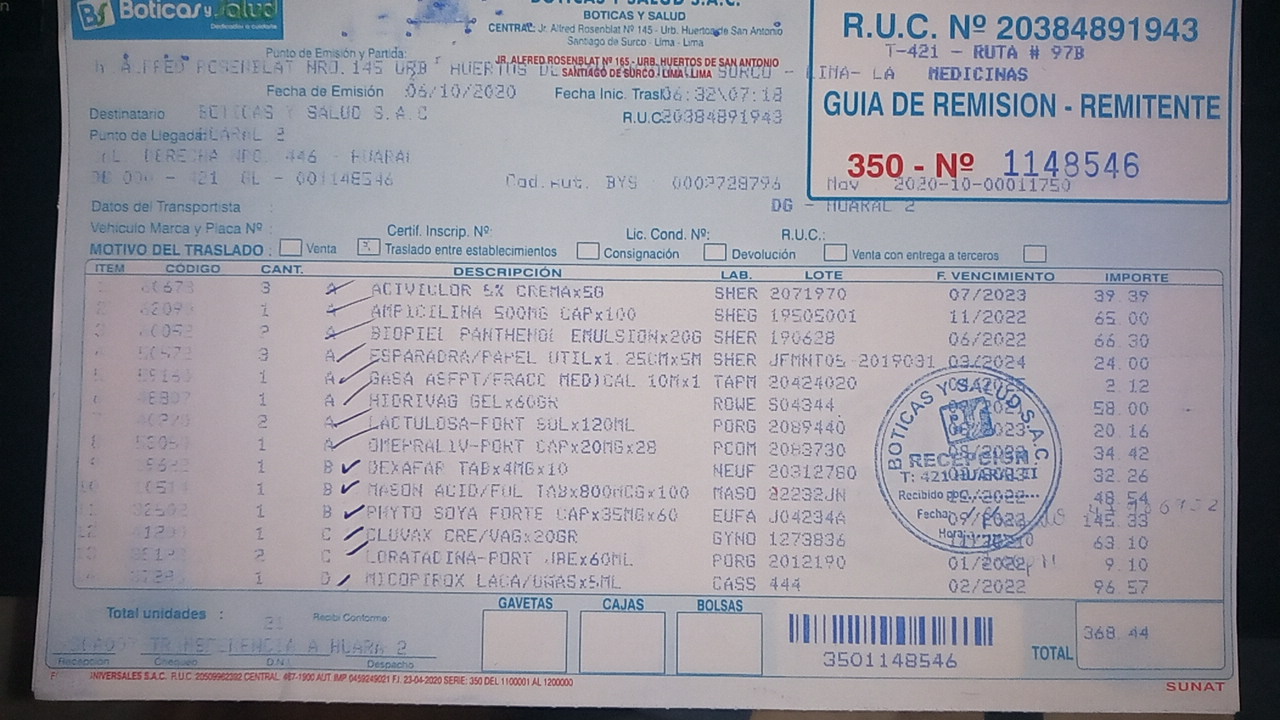 BS Boticas y Salud
BOTICAS Y SALUD S.A.C.
BOTICAS Y SALUD
CENTRAL: Jr. Alfred Rosenblat Nº 145 - Urb. Huertos de San Antonio
Santiago de Surco - Lima - Lima
R.U.C. Nº 20384891943
T-421 - RUTA # 97B
MEDICINAS
GUIA DE REMISION - REMITENTE
350 - Nº 1148546
Nov 2020-10-00011750
DG - HUARAL 2
Punto de Emisión y Partida:
ALFRED ROSENBLAT NRO. 145 URB HUERTOS DE SURCO - LIMA- LA
JR. ALFRED ROSENBLAT Nº 165 - URB. HUERTOS DE SAN ANTONIO
SANTIAGO DE SURCO - LIMA - LIMA
Fecha de Emisión 06/10/2020 Fecha Inic. Trasl 06:32\07:18
Destinatario BOTICAS Y SALUD S.A.C R.U.C 20384891943
Punto de Llegada: HUARAL 2
DERECHA NRO. 446 - HUARAL
000 - 421 GL - 001148546 Cod.Aut. BYS 0002728796
Datos del Transportista :
Vehículo Marca y Placa Nº : Certif. Inscrip. Nº: Lic. Cond. Nº: R.U.C.:
MOTIVO DEL TRASLADO : Venta Traslado entre establecimientos Consignación Devolución Venta con entrega a terceros
ITEM CÓDIGO CANT. DESCRIPCIÓN LAB. LOTE F. VENCIMIENTO IMPORTE
3 A ACIVICLOR 5% CREMAx5G SHER 2071970 07/2023 39.39
1 A AMPICILINA 500MG CAPx100 SHEG 19505001 11/2022 65.00
2 A BIOPIEL PANTHENOL EMULSIONx20G SHER 190628 06/2022 66.30
3 A ESPARADRA/PAPEL UTILx1.25CMx5M SHER JFMNT05-2019031 03/2024 24.00
1 A GASA ASEPT/FRACC MEDICAL 10Mx1 TAPM 20424020 2.12
1 A HIDRIVAG GELx60GR ROWE S04344 58.00
2 A LACTULOSA-PORT SOLx120ML PORG 2089440 20.16
1 A OMEPRALIV-PORT CAPx20MGx28 PCOM 2083730 34.42
1 B DEXAFAR TABx4MGx10 NEUF 20312780 32.26
1 B MASON ACID/FOL TABx800MCGx100 MASO 22232JN 48.54
1 B PHYTO SOYA FORTE CAPx35MGx60 EUFA J04234A 09/2022 145.33
1 C CLUVAX CRE/VAGx20GR GYNO 1273836 63.10
2 C LORATADINA-PORT JBEx60ML PORG 2012190 01/2022 9.10
1 D MICOPIROX LACA/UÑASx5ML CASS 444 02/2022 96.57
BOTICAS Y SALUD S.A.C.
RECEPCION
T: 421 HUARAL II
Recibido por
Fecha:
Hora:
Total unidades : 21 Recibi Conforme:
A HUARA 2
Recepción Chequeo D.N.I. Despacho
GAVETAS CAJAS BOLSAS
3501148546
TOTAL 368.44
UNIVERSALES S.A.C. R.U.C. 20509962392 CENTRAL: 467-1900 AUT. IMP. 0459249021 F.I. 23-04-2020 SERIE: 350 DEL 1100001 AL 1200000
SUNAT